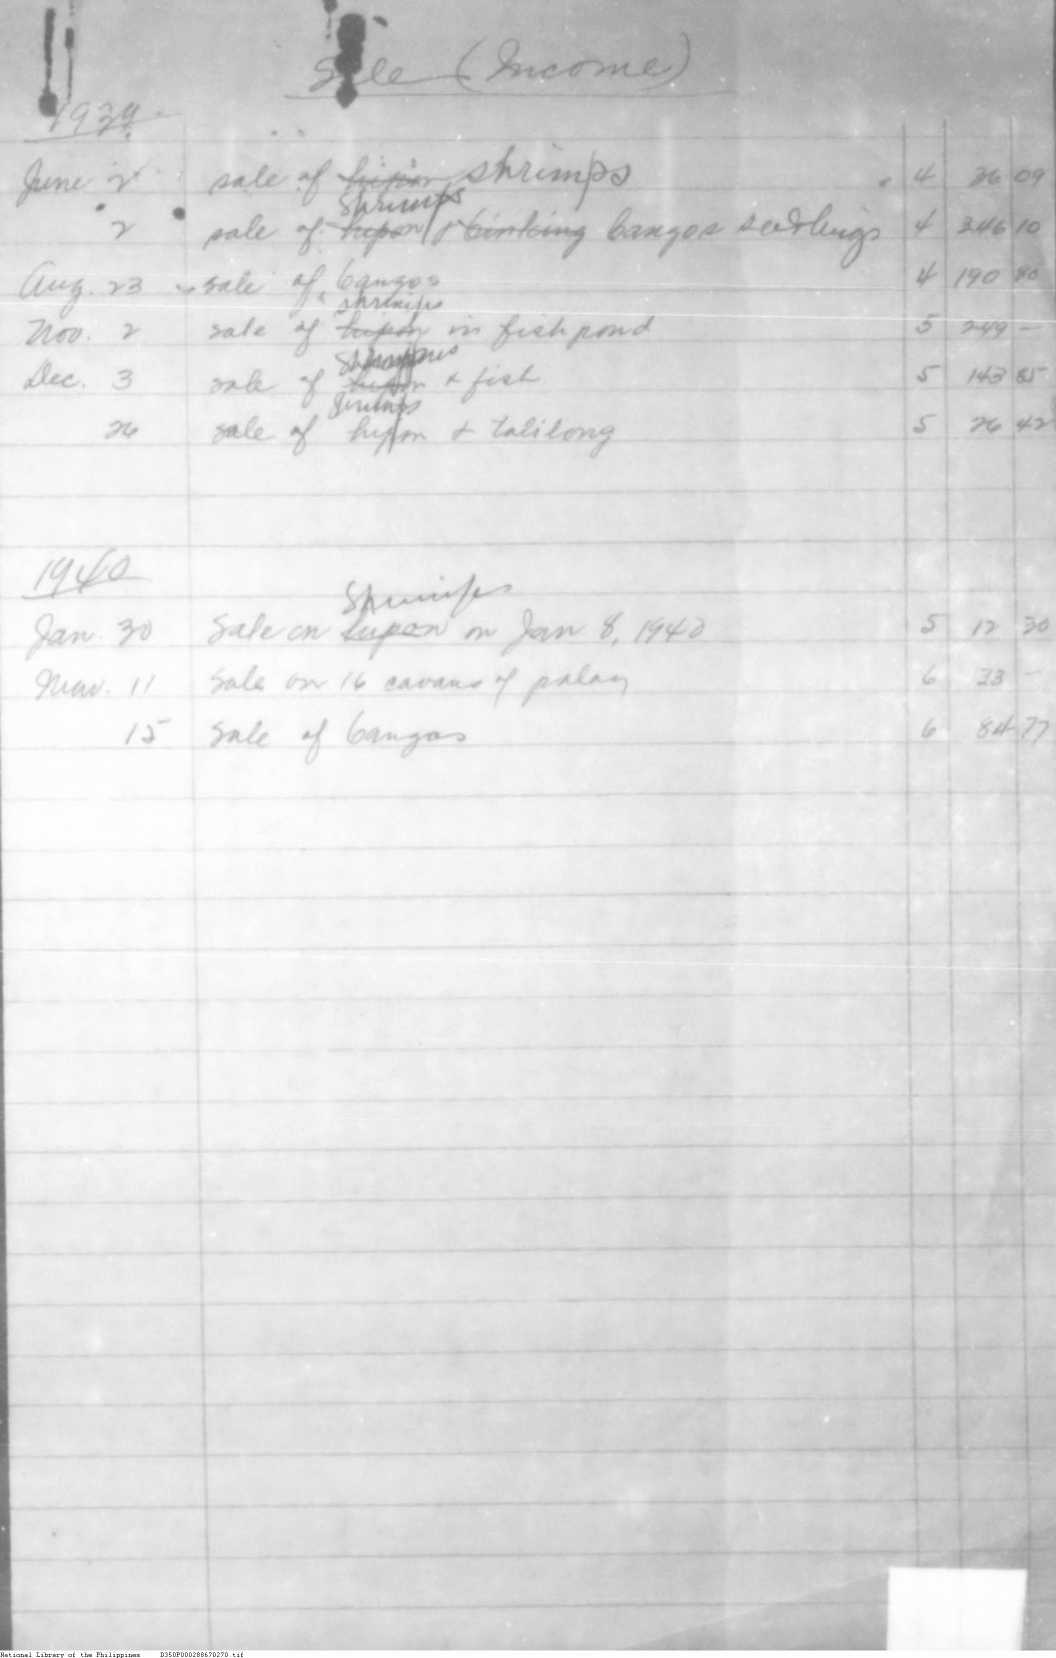 Sale (Income)
1939
June 2 sale of hipon shrimps 4 26 09
shrimps
2 sale of hipon & binting bangos seedlings 4 246 10
Aug. 23 sale of bangos 4 190 80
shrimps
Nov. 2 sale of hipon in fish pond 5 249 —
Shrimps
Dec. 3 sale of hipon & fish 5 143 85
Shrimps
26 sale of hipon & talilong 5 26 42
1940
Shrimps
Jan. 30 Sale on hipon on Jan 8, 1940 5 12 30
Mar. 11 Sale on 16 cavans of palay 6 33 —
15 Sale of bangos 6 84 77
National Library of the Philippines D350P000288670270.tif